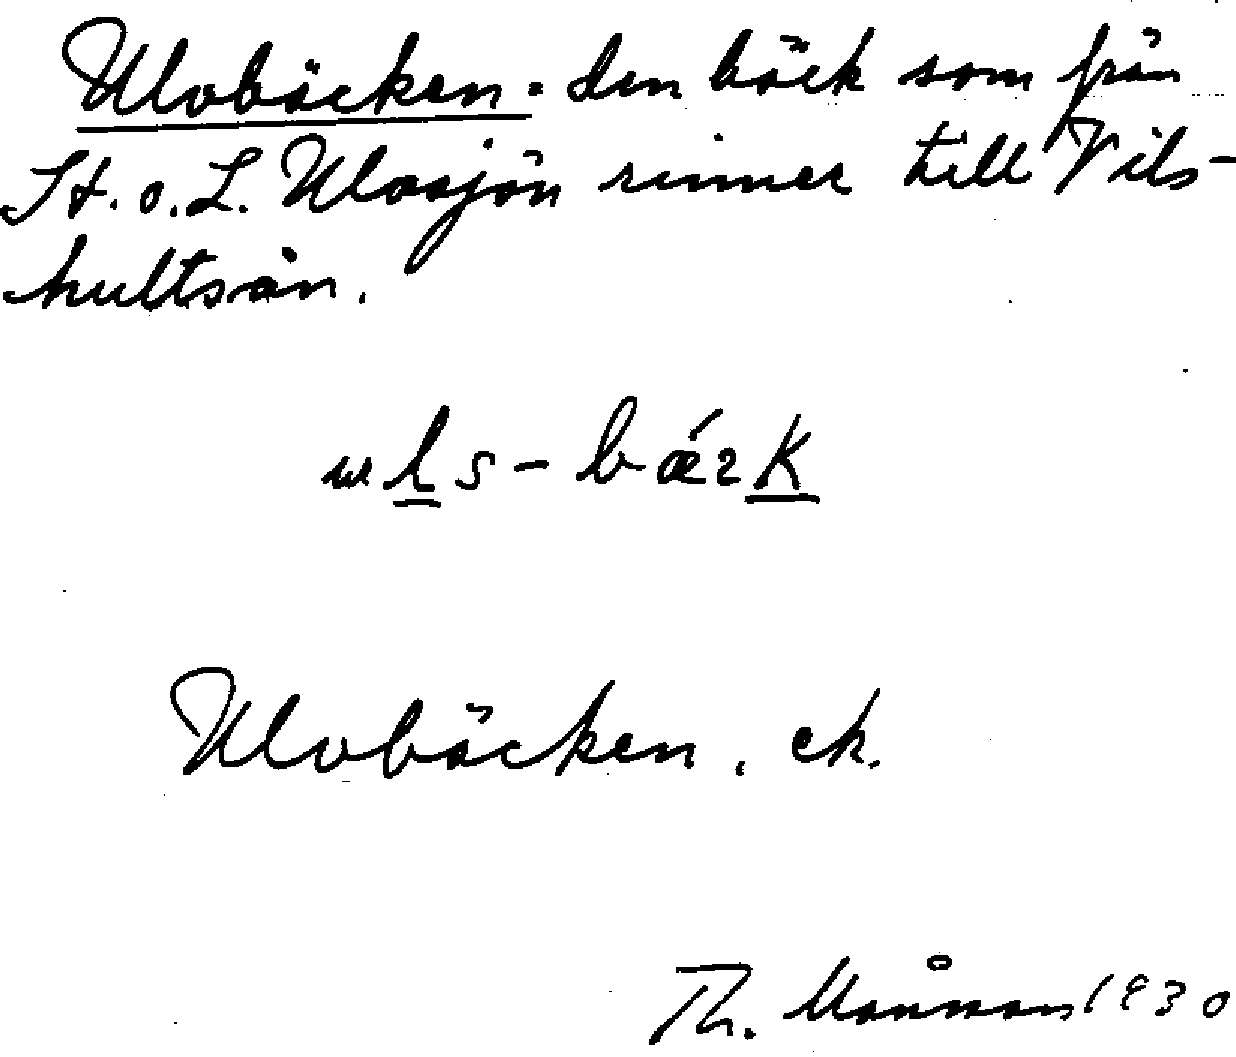 Ulvbäcken = den bäck som från
St. o. L. Ulvsjön rinner till Vils-
hultsån.
Ulvbäcken, ek.
Th. 1930